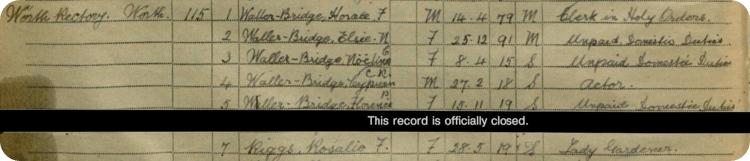 Worth Rectory. Worth. 115 1 Waller-Bridge, Horace F M 14.4 79 M Clerk in Holy Orders.
2 Waller-Bridge, Elsie N F 25.12 91 M Unpaid Domestic Duties
3 Waller-Bridge, F 8.4 15 S Unpaid Domestic Duties
4 Waller-Bridge, Cyprian C.R. M 27.2 18 S Actor.
5 Waller-Bridge, Florence P. F 15.11 19 S Unpaid Domestic Duties
This record is officially closed.
7 Riggs, Rosalie F. F 28.5 19 S Lady Gardener.